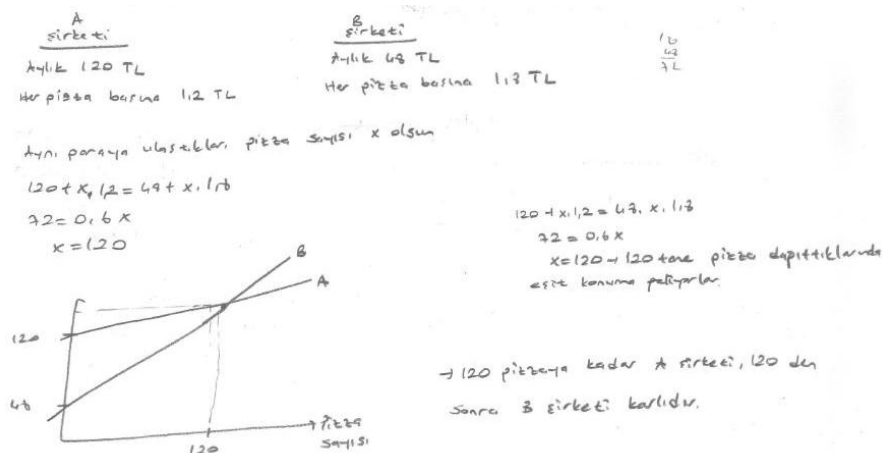 A
şirketi
Aylık 120 TL
Her pizza başına 1,2 TL
B
şirketi
Aylık 48 TL
Her pizza başına 1,8 TL
120
48
72
Aynı paraya ulaştıkları pizza sayısı x olsun
120 + x.1,2 = 48 + x.1,8
72 = 0,6 x
x = 120
120 + x.1,2 = 48. x.1,8
72 = 0,6x
x = 120 → 120 tane pizza dağıttıklarında
eşit konuma geliyorlar.
B
A
120
48
120
→ Pizza
sayısı
→ 120 pizzaya kadar A şirketi, 120 den
sonra B şirketi karlıdır.